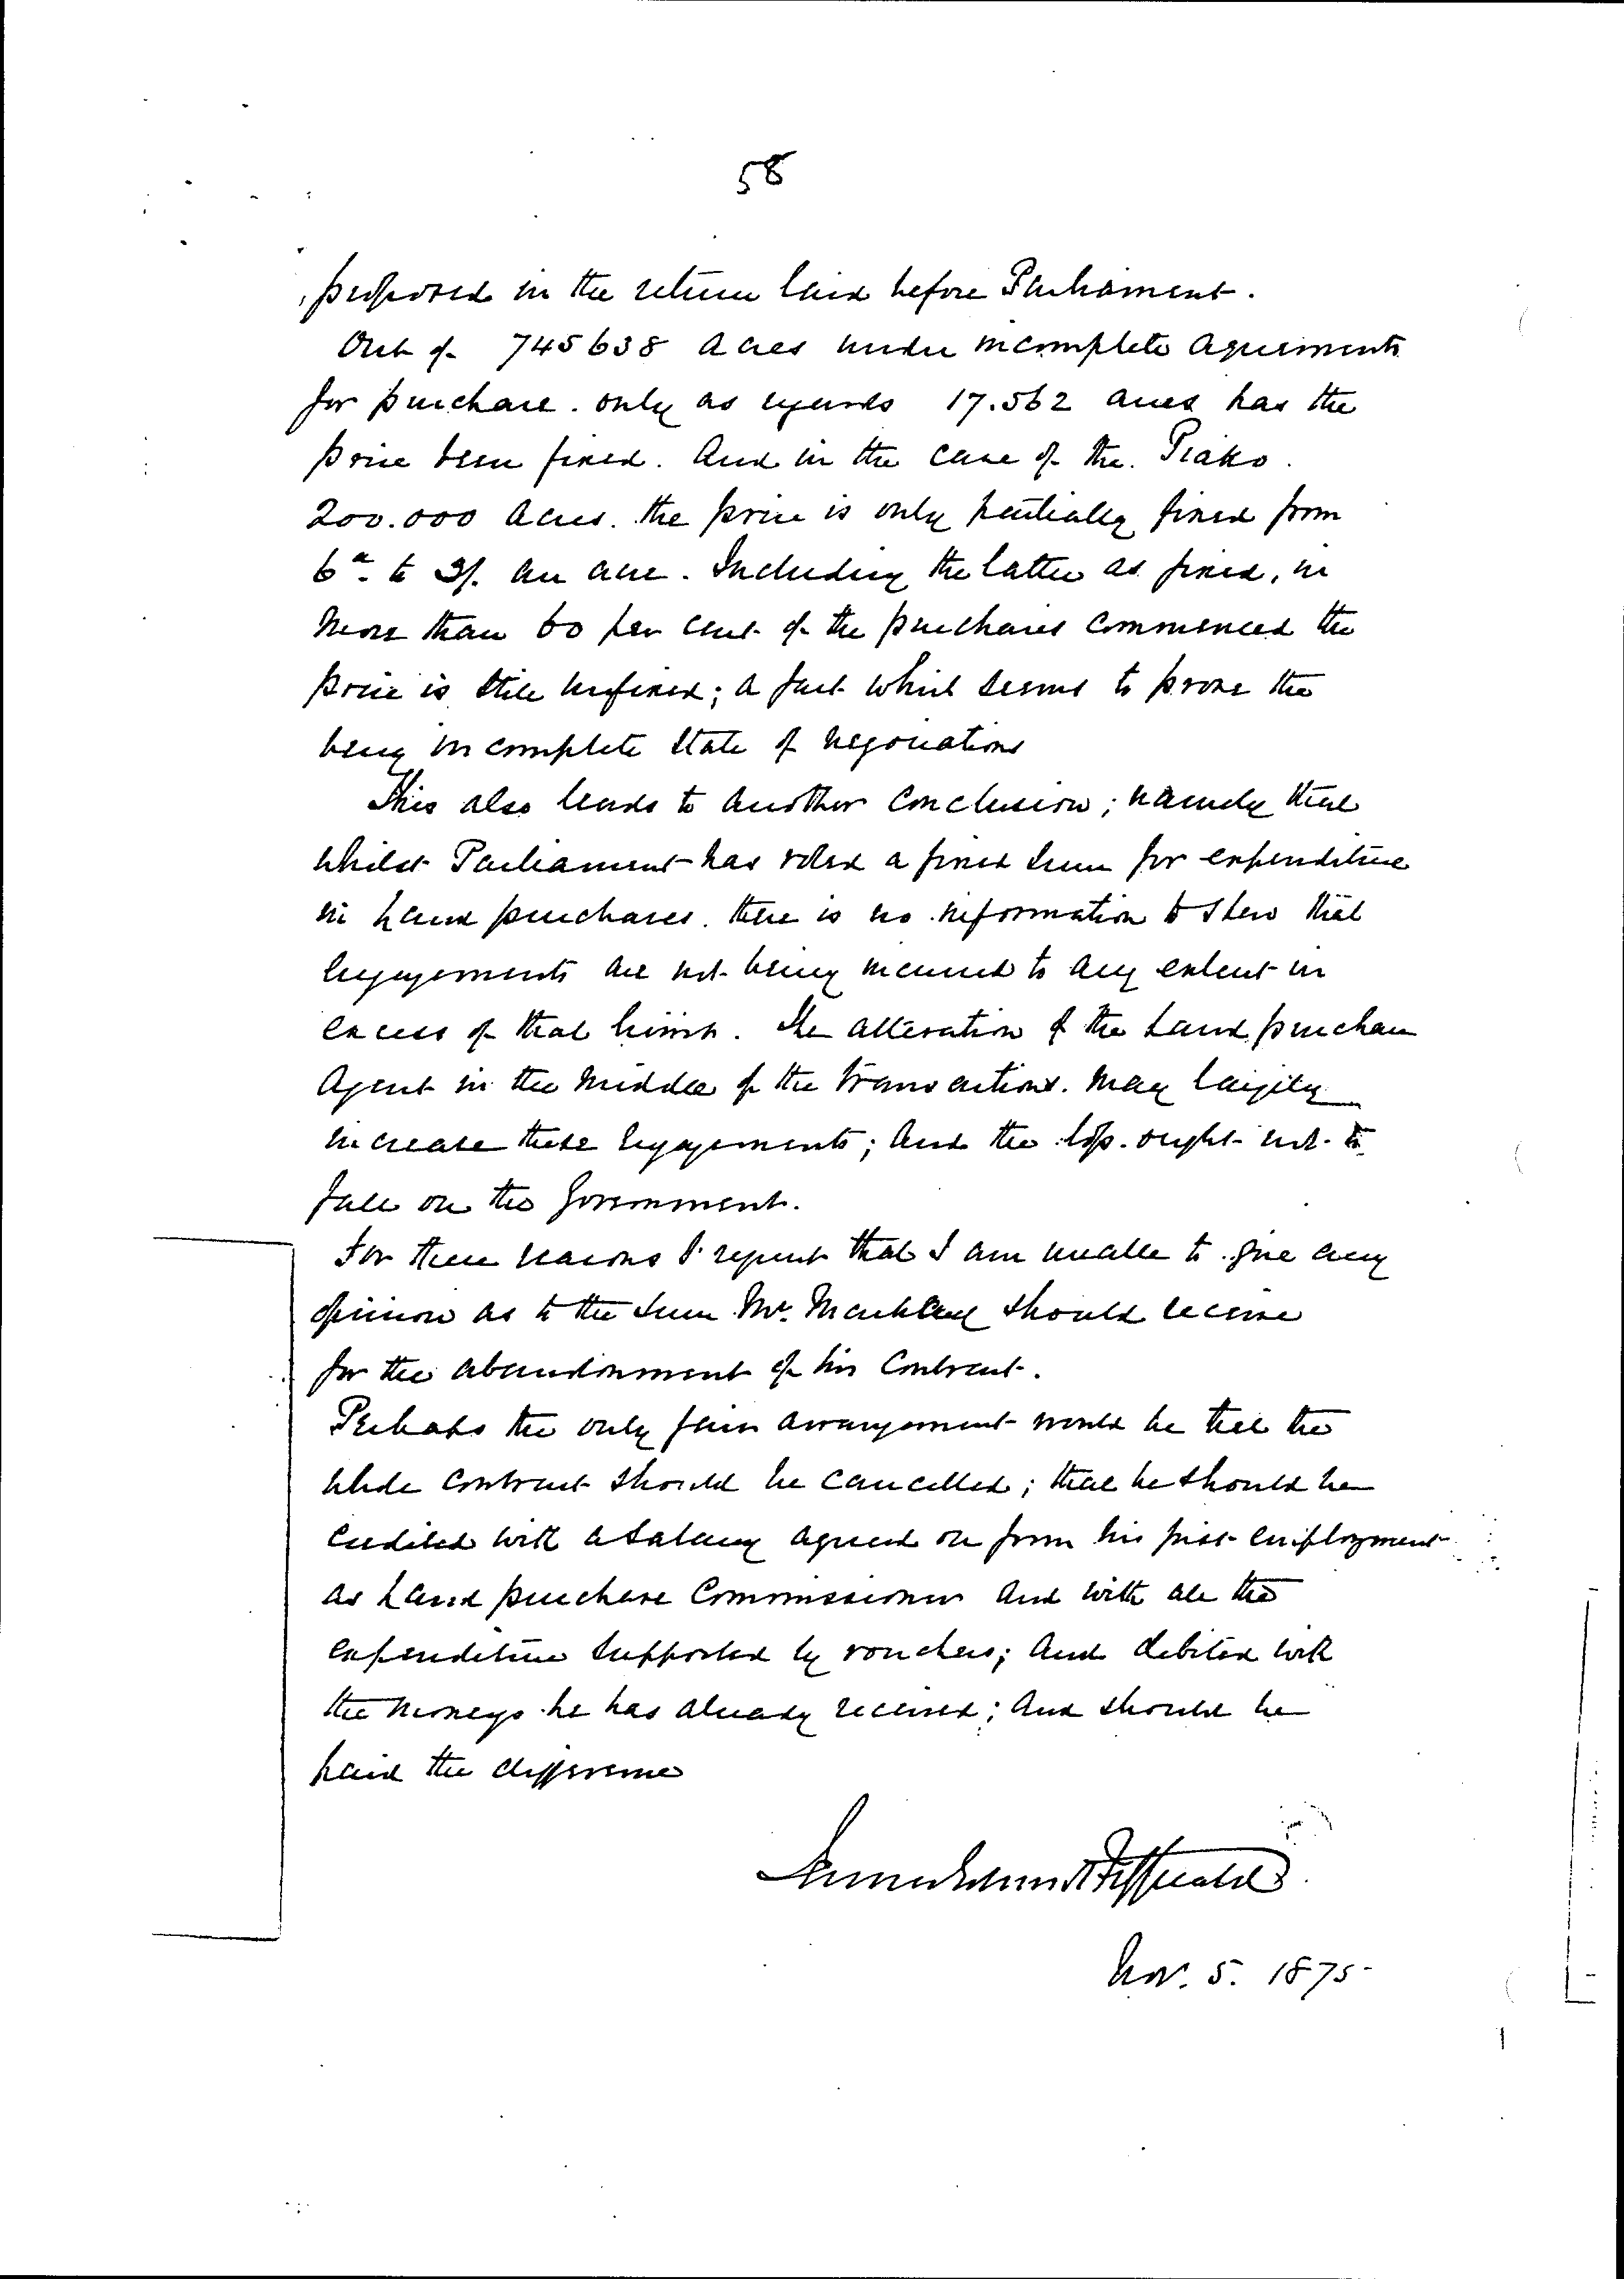 58
proposed in the return laid before Parliament.
Out of 745638 acres under incomplete agreements
for purchase. only as regards 17.562 acres has the
price been fixed. And in the case of the. Piako.
200.000 acres. the price is only partially fixed from
6d. to 3/. an acre. Including the latter as fixed, in
more than 60 per cent of the purchases commenced the
price is still unfixed; a fact which seems to prove the
very incomplete state of negotiations
This also leads to another conclusion; namely that
whilst Parliament has voted a fixed sum for expenditure
in Land purchases. there is no information to shew that
engagements are not being incurred to any extent in
excess of that limit. The alteration of the Land purchase
Agent in the middle of the transactions. may largely
increase these engagements; and the loss. ought not to
fall on the Government.
For these reasons I repeat that I am unable to give any
opinion as to the sum Mr. Mackay should receive
for the abandonment of his Contract.
Perhaps the only fair arrangement would be that the
whole contract should be cancelled; that he should be
credited with a salary agreed on from his first employment
as Land purchase Commissioner and with all the
expenditure supported by vouchers; and debited with
the moneys he has already received; and should be
paid the difference
Nov. 5. 1875